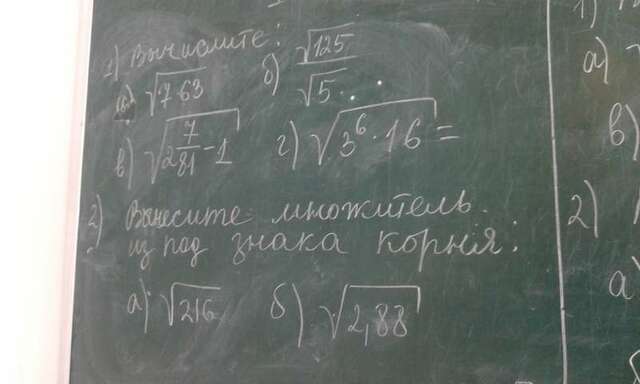 1) Вычислите:
а) √7 63 б) √125/√5
в) √2 7/81 - 1 г) √3⁶ · 16 =
2) Вынесите множитель
из под знака корня:
а) √216 б) √2,88
1)
а) √
в)
2)
а)